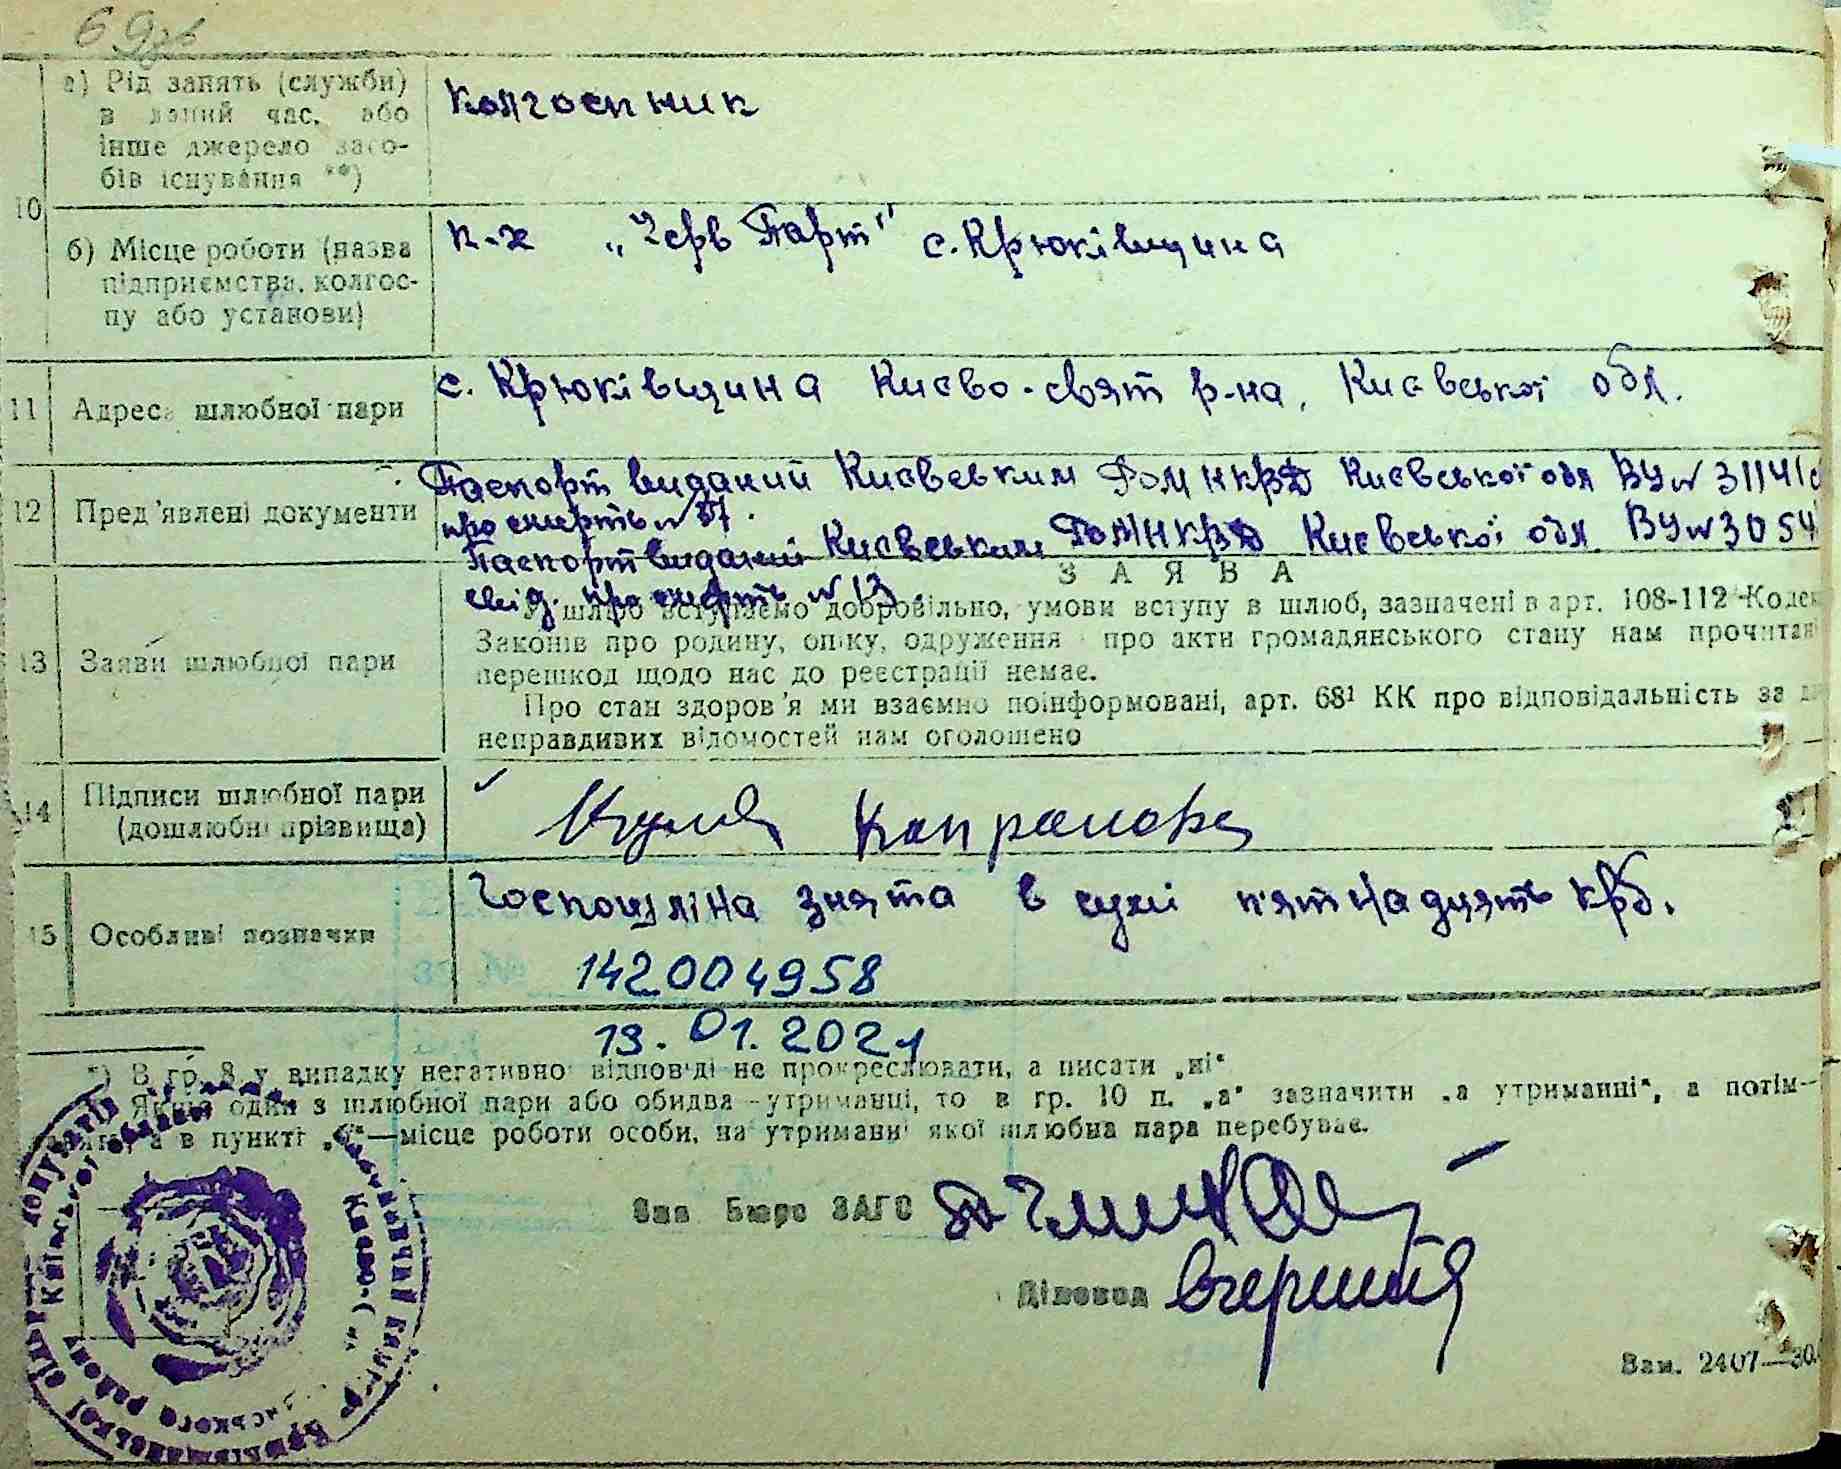 69зв
10
а) Рід занять (служби)
в даний час, або
інше джерело засо-
бів існування **)
колгоспник
б) Місце роботи (назва
підприємства, колгос-
пу або установи)
к-х „Черв Парт" с. Крюківщина
11 Адреса шлюбної пари
с. Крюківщина Києво-свят р-на, Київської обл.
12 Пред'явлені документи
Паспорт виданий Києвським НКВД Києвської обл ВУ№ 31141
про смерть №
Паспорт виданий Києвським НКВД Києвської обл. ВУ№ 3054
свід. про смерть № 13.
13 Заяви шлюбної пари
ЗАЯВА
У шлюб вступаємо добровільно, умови вступу в шлюб, зазначені в арт. 108-112 Кодек
Законів про родину, опіку, одруження про акти громадянського стану нам прочитан
перешкод щодо нас до реєстрації немає.
Про стан здоров'я ми взаємно поінформовані, арт. 68¹ КК про відповідальність за
неправдивих відомостей нам оголошено
14 Підписи шлюбної пари
(дошлюбні прізвища)
Капранова
15 Особливі позначки
Госпошліна знята в сумі п'ятнадцять крб.
142004958
13.01.2021
*) В гр. 8 у випадку негативної відповіді не прокреслювати, а писати „ні"
Якщо один з шлюбної пари або обидва утриманці, то в гр. 10 п. „а" зазначити „а утриманні", а потім—
а в пункті „б"—місце роботи особи, на утриманні якої шлюбна пара перебуває.
Зав Бюро ЗАГС
Діловод
Зам. 2407—30.
депутатів
Київської області
Києво-С
району